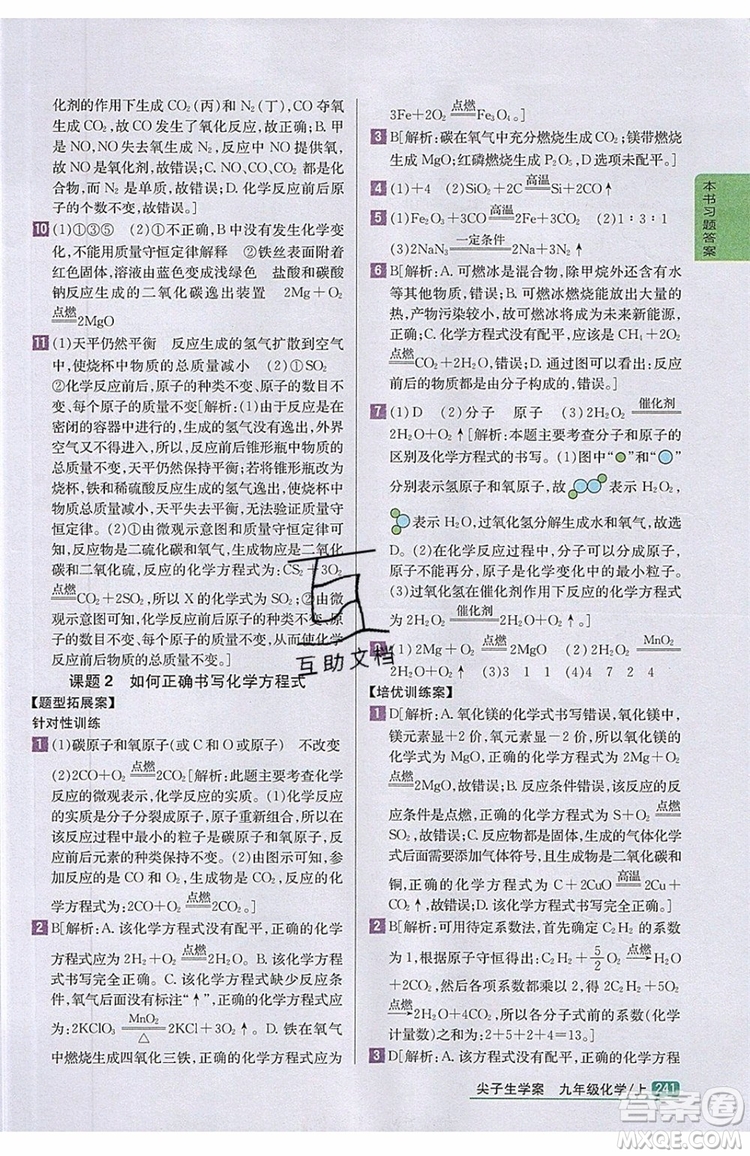 化剂的作用下生成 CO₂(丙)和 N₂(丁),CO 夺氧
生成 CO₂,故 CO 发生了氧化反应,故错误;B. 甲
是 NO,NO 失去氧生成 N₂,反应中 NO 提供氧,
故 NO 是氧化剂,故错误;C. NO、CO、CO₂ 都是化
合物,而 N₂ 是单质,故错误;D. 化学反应前后原
子的个数不变,故错误。]
10 (1)①③⑤ (2)①中没有发生化学变
化,因此不能用质量守恒定律解释 ②铁丝表面附着
红色固体,溶液由蓝色变成浅绿色 盐酸和碳酸
钠反应生成的二氧化碳逸出装置 2Mg+O₂
点燃
2MgO
11 (1)天平仍然平衡 反应生成的氢气扩散到空气
中,使烧杯中物质的总质量减小 (2)①SO₂
②化学反应前后,原子的种类不变、原子的数目不
变、每个原子的质量不变[解析:(1)由于甲反应是在
密闭的容器中进行的,生成的氢气没有逸出,外界
空气又不可能进入,所以反应前后锥形瓶中物质的
总质量不变,天平仍然保持平衡;若将锥形瓶改为
烧杯,铁与稀硫酸反应生成的氢气逸出,使烧杯中
物质的总质量减小,天平失去平衡,无法验证质量守
恒定律。(2)①由微观示意图和质量守恒定律可
知,反应物是二硫化碳和氧气,生成物是二氧化碳
和二氧化硫,反应的化学方程式为:CS₂+3O₂
点燃
CO₂+2SO₂,所以 X 的化学式为SO₂;②由微观
示意图可知,化学反应前后,原子的种类、数目、质量
不变。]
课题 2 如何正确书写化学方程式
【题型拓展案】
针对性训练
1 (1)碳原子和氧原子(或 C 和 O 或原子) 不改变
(2)2CO+O₂ 点燃 2CO₂[解析:此题主要考查化学
反应的微观表示,化学反应的实质。(1)化学反应的
实质是分子分裂成原子,原子重新组合,所以在
该反应过程中,最小的粒子是碳原子和氧原子,反
应前后元素的种类保持不变。(2)反应的化学方程
式为:2CO+O₂ 点燃 2CO₂。]
2 B[解析:A. 该化学方程式没有配平,正确的化学
方程式应为 2H₂+O₂ 点燃 2H₂O;B. 该化学方程
式书写完全正确。C. 该化学方程式缺少反应条
件,氧气后面没有标注“↑”,正确的化学方程式应
为:2KClO₃ MnO₂ △ 2KCl+3O₂↑;D. 铁在氧气
中燃烧生成四氧化三铁,正确的化学方程式应为
3Fe+2O₂ 点燃 Fe₃O₄。]
3 B[解析:碳在氧气中充分燃烧生成 CO₂;镁带燃烧
生成 MgO;红磷燃烧生成 P₂O₅,D 选项未配平。]
4 (1)+4 (2)SiO₂+2C 高温 Si+2CO↑
5 (1)2SO₂+O₂ 点燃 2SO₃ (2)1∶3∶1
(3)2NaN₃ 一定条件 2Na+3N₂↑
6 B[解析:A. 可燃冰是混合物,除甲烷外还含有水
等其他的物质,错误;B. 可燃冰能燃烧放出大量的
热,产物污染较小,有可能成为未来新能源,
正确;C. 化学方程式没有配平,应该是 CH₄+2O₂
点燃 CO₂+2H₂O,错误;D. 通过图可以看出可
燃冰是由分子构成的,错误。]
7 (1)D (2)分子 原子 (3)2H₂O₂ 催化剂
2H₂O+O₂↑[解析:本题主要考查分子和原子的
区别及化学方程式的书写。(1)图中“”和“”
分别表示氢原子和氧原子,故表示 H₂O₂,
表示 H₂O,过氧化氢分解生成水和氧气,故选
D。(2)反应中,分子可以分成原子,原子
不能再分,所以原子是化学变化中的最小粒子。
(3)过氧化氢在催化剂作用下反应的化学方程式
为 2H₂O₂ 催化剂 2H₂O+O₂↑。]
8 (1)2Mg+O₂ 点燃 2MgO (2)2H₂O₂ MnO₂
2H₂O+O₂↑ (3)4 3 2 (4)1 7 2 4
【培优训练案】
1 D[解析:A. 氧化镁的化学式书写错误,氧化镁中,
镁元素显+2 价,氧元素显-2 价,氧化镁的化学式
为 MgO,正确的化学方程式为 2Mg+O₂
点燃
2MgO,故错误;B. 化学方程式应该配平,该反应的
反应条件是点燃,正确的化学方程式为 S+O₂ 点燃
SO₂,故错误;C. 反应物中有气体,生成的气体化学
式后面不能加气体符号,且该反应的反应条件应该
是点燃,故错误;D. 碳与氧化铜反应生成二氧化碳和
铜,正确的化学方程式为 C+2CuO 高温 2Cu+
CO₂↑,该反应的化学方程式书写完全正确。]
2 D[解析:可用待定系数法,令 C₂H₂ 的系数
为 1,根据原子守恒可得出:C₂H₂+5/2O₂ 点燃
2CO₂+H₂O,再将系数化为整数得:2C₂H₂+5O₂
点燃 2H₂O+4CO₂,所以各分子式前的系数(化学
计量数)之和为:2+5+2+4=13。]
3 D[解析:A. 该化学方程式没有配平,化学方程
本书习题答案
互助文档
尖子生学案 九年级化学/上 241
答案圈
MXQE.COM